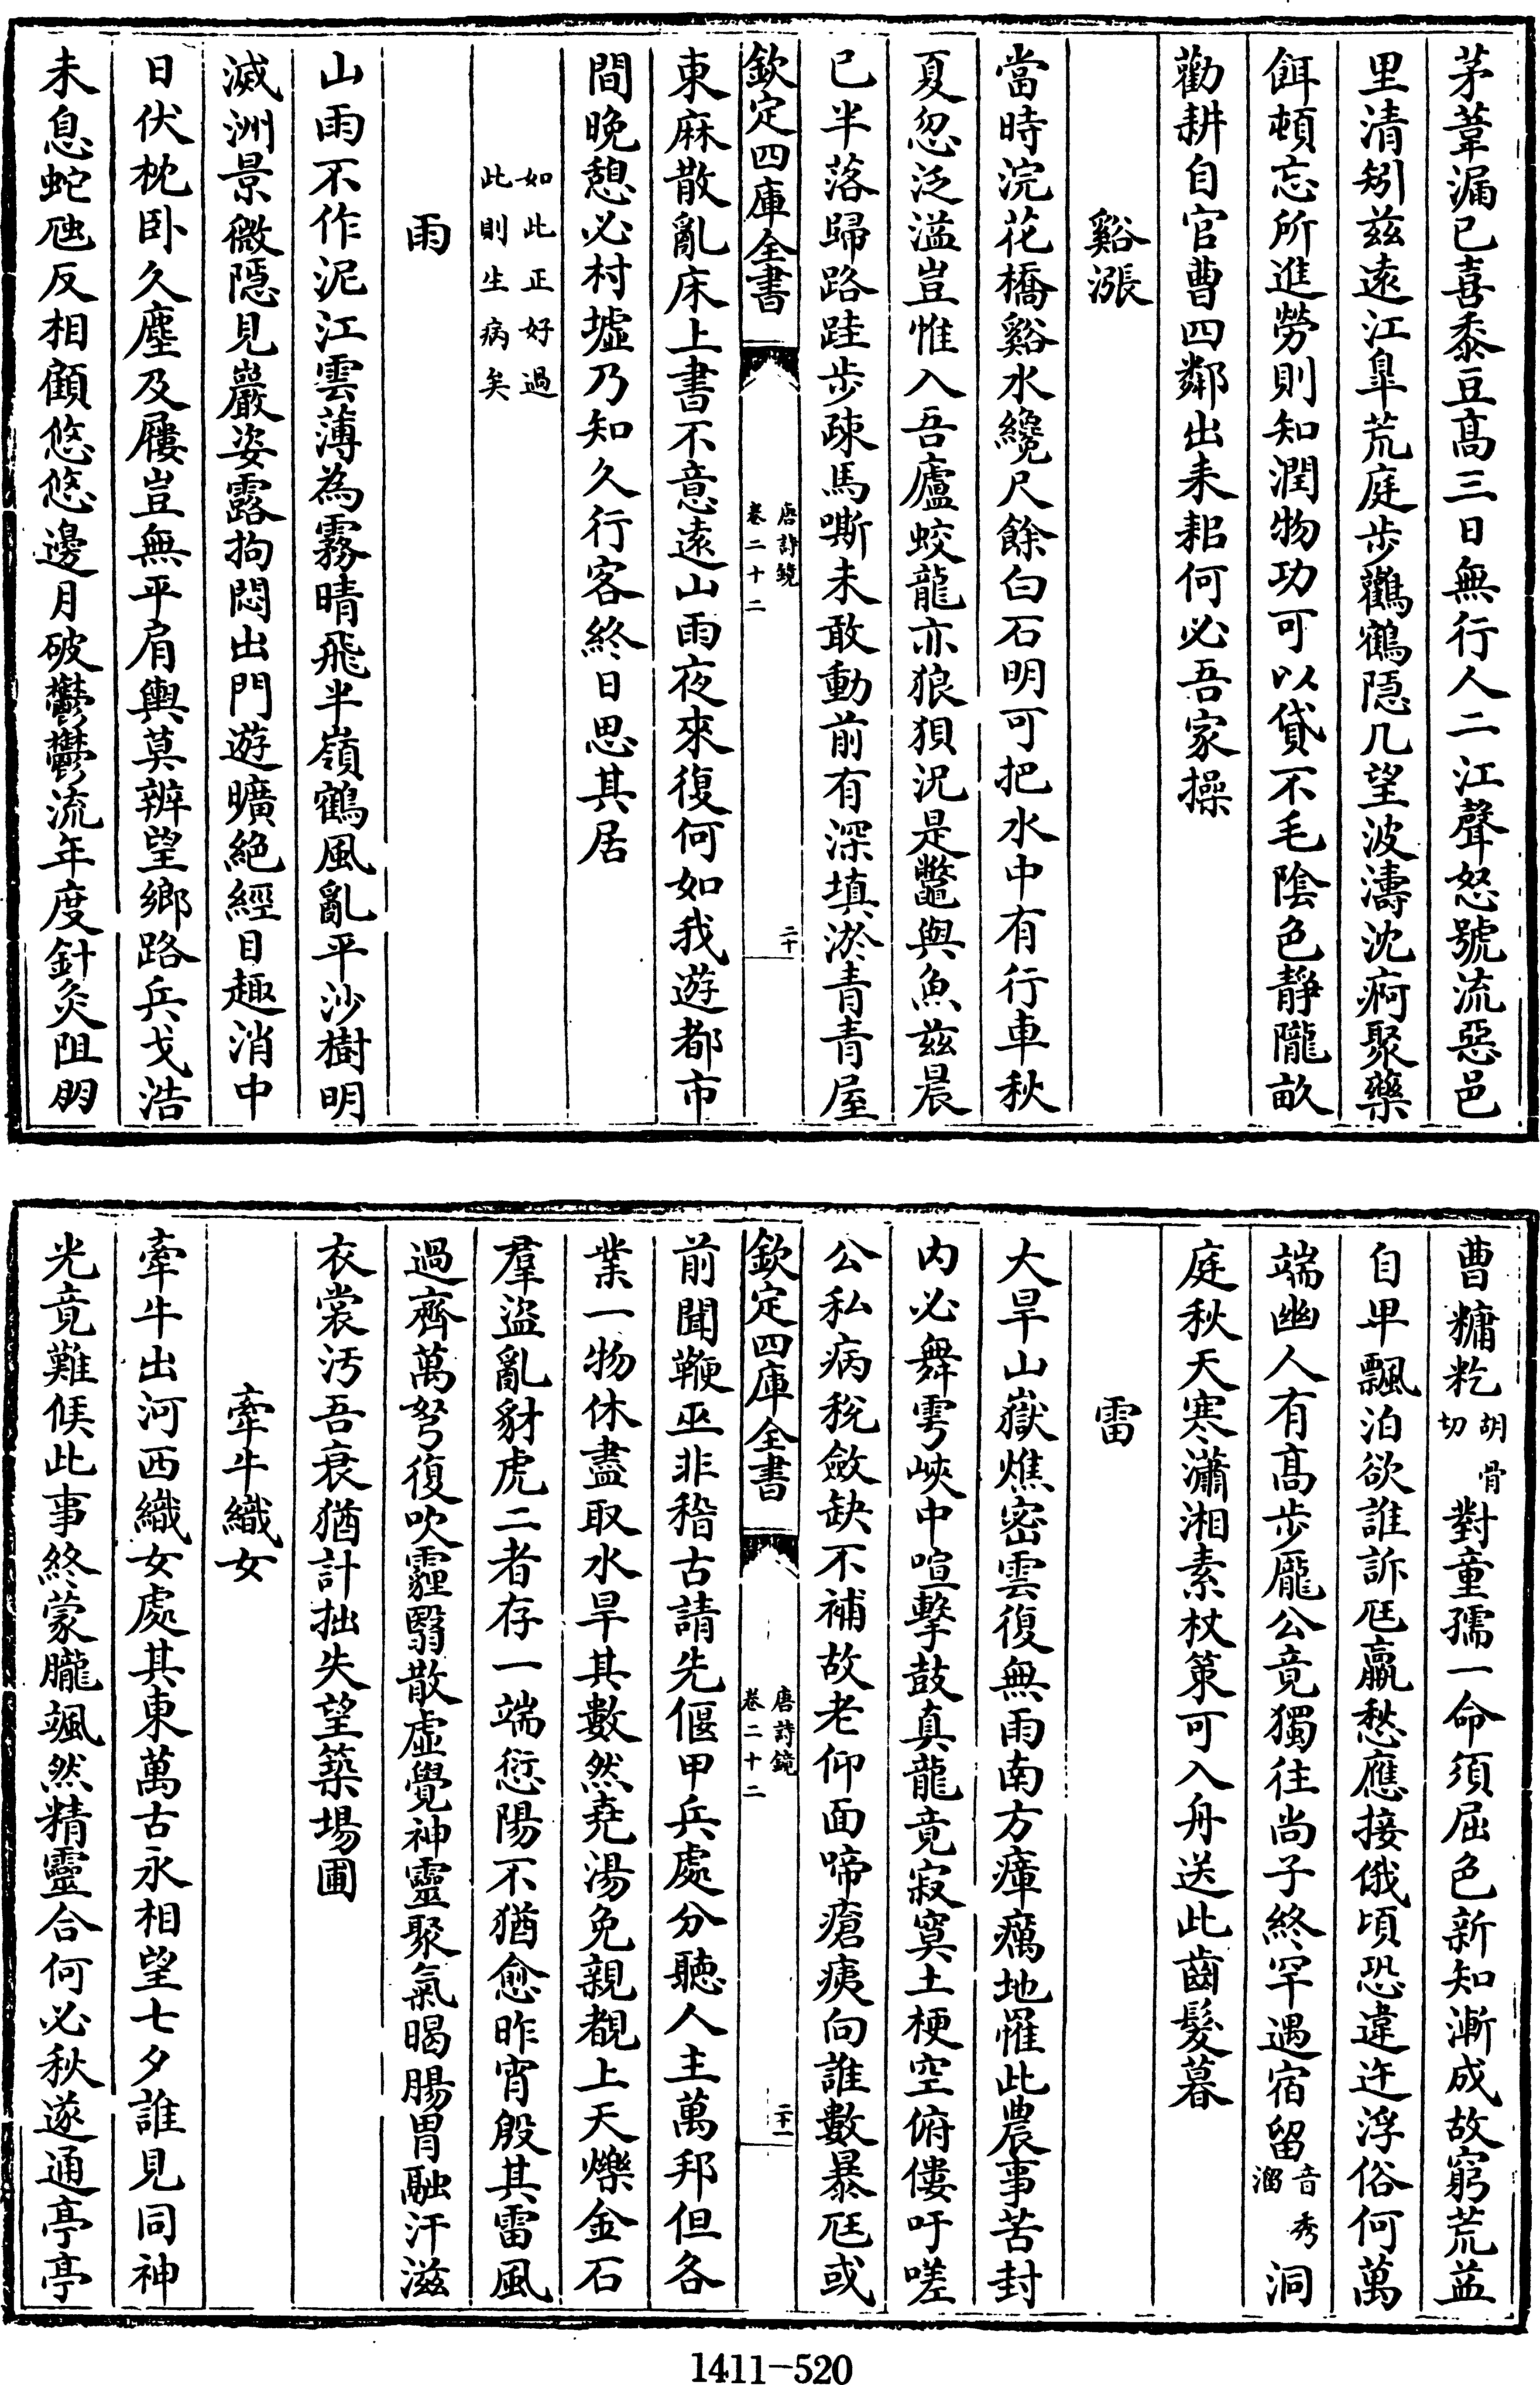 茅葦漏已喜黍豆高三日無行人二江聲怒號流惡邑
里清矧兹逺江臯荒庭步鸛鶴隠几望波濤沈痾聚藥
餌頓忘所進勞則知潤物功可以貸不毛隂色静隴畝
勸耕自官曹四鄰出耒耜何必吾家操
谿漲
當時浣花橋谿水纔尺餘白石明可把水中有行車秋
夏忽泛溢豈惟入吾廬蛟龍亦狼狽況是鼈與魚兹晨
已半落歸路跬步疎馬嘶未敢動前有深填淤青青屋
欽定四庫全書
唐詩鏡
卷二十二
二十
東麻散亂床上書不意逺山雨夜來復何如我遊都市
間晚憩必村墟乃知久行客終日思其居
如此正好過
此則生病矣
雨
山雨不作泥江雲薄為霧晴飛半嶺鶴風亂平沙樹明
滅洲景微隠見巖姿露拘悶出門遊曠絶經目趣消中
日伏枕卧久塵及屨豈無平肩輿莫辨望鄉路兵戈浩
未息蛇虺反相顧悠悠邊月破鬱鬱流年度針灸阻朋
曹糠籺
胡骨
切
對童孺一命須屈色新知漸成故窮荒益
自卑飄泊欲誰訴尫羸愁應接俄頃恐違迕浮俗何萬
端幽人有髙步龎公竟獨往尚子終罕遇宿留
音秀
溜
洞
庭秋天寒瀟湘素杖策可入舟送此齒髮暮
雷
大旱山嶽燋密雲復無雨南方瘴癘地罹此農事苦封
内必舞雩峽中喧擊鼓真龍竟寂寞土梗空俯僂吁嗟
公私病稅斂缺不補故老仰面啼瘡痍向誰數暴尫或
欽定四庫全書
唐詩鏡
卷二十二
二十一
前聞鞭巫非稽古請先偃甲兵處分聽人主萬邦但各
業一物休盡取水旱其數然堯湯免親覩上天爍金石
羣盜亂豺虎二者存一端愆陽不猶愈昨宵殷其雷風
過齊萬弩復吹霾翳散虛覺神靈聚氣暍腸胃融汗滋
衣裳汚吾衰猶計拙失望築場圃
牽牛織女
牽牛出河西織女處其東萬古永相望七夕誰見同神
光竟難候此事終蒙朧颯然精靈合何必秋遂通亭亭
1411-520